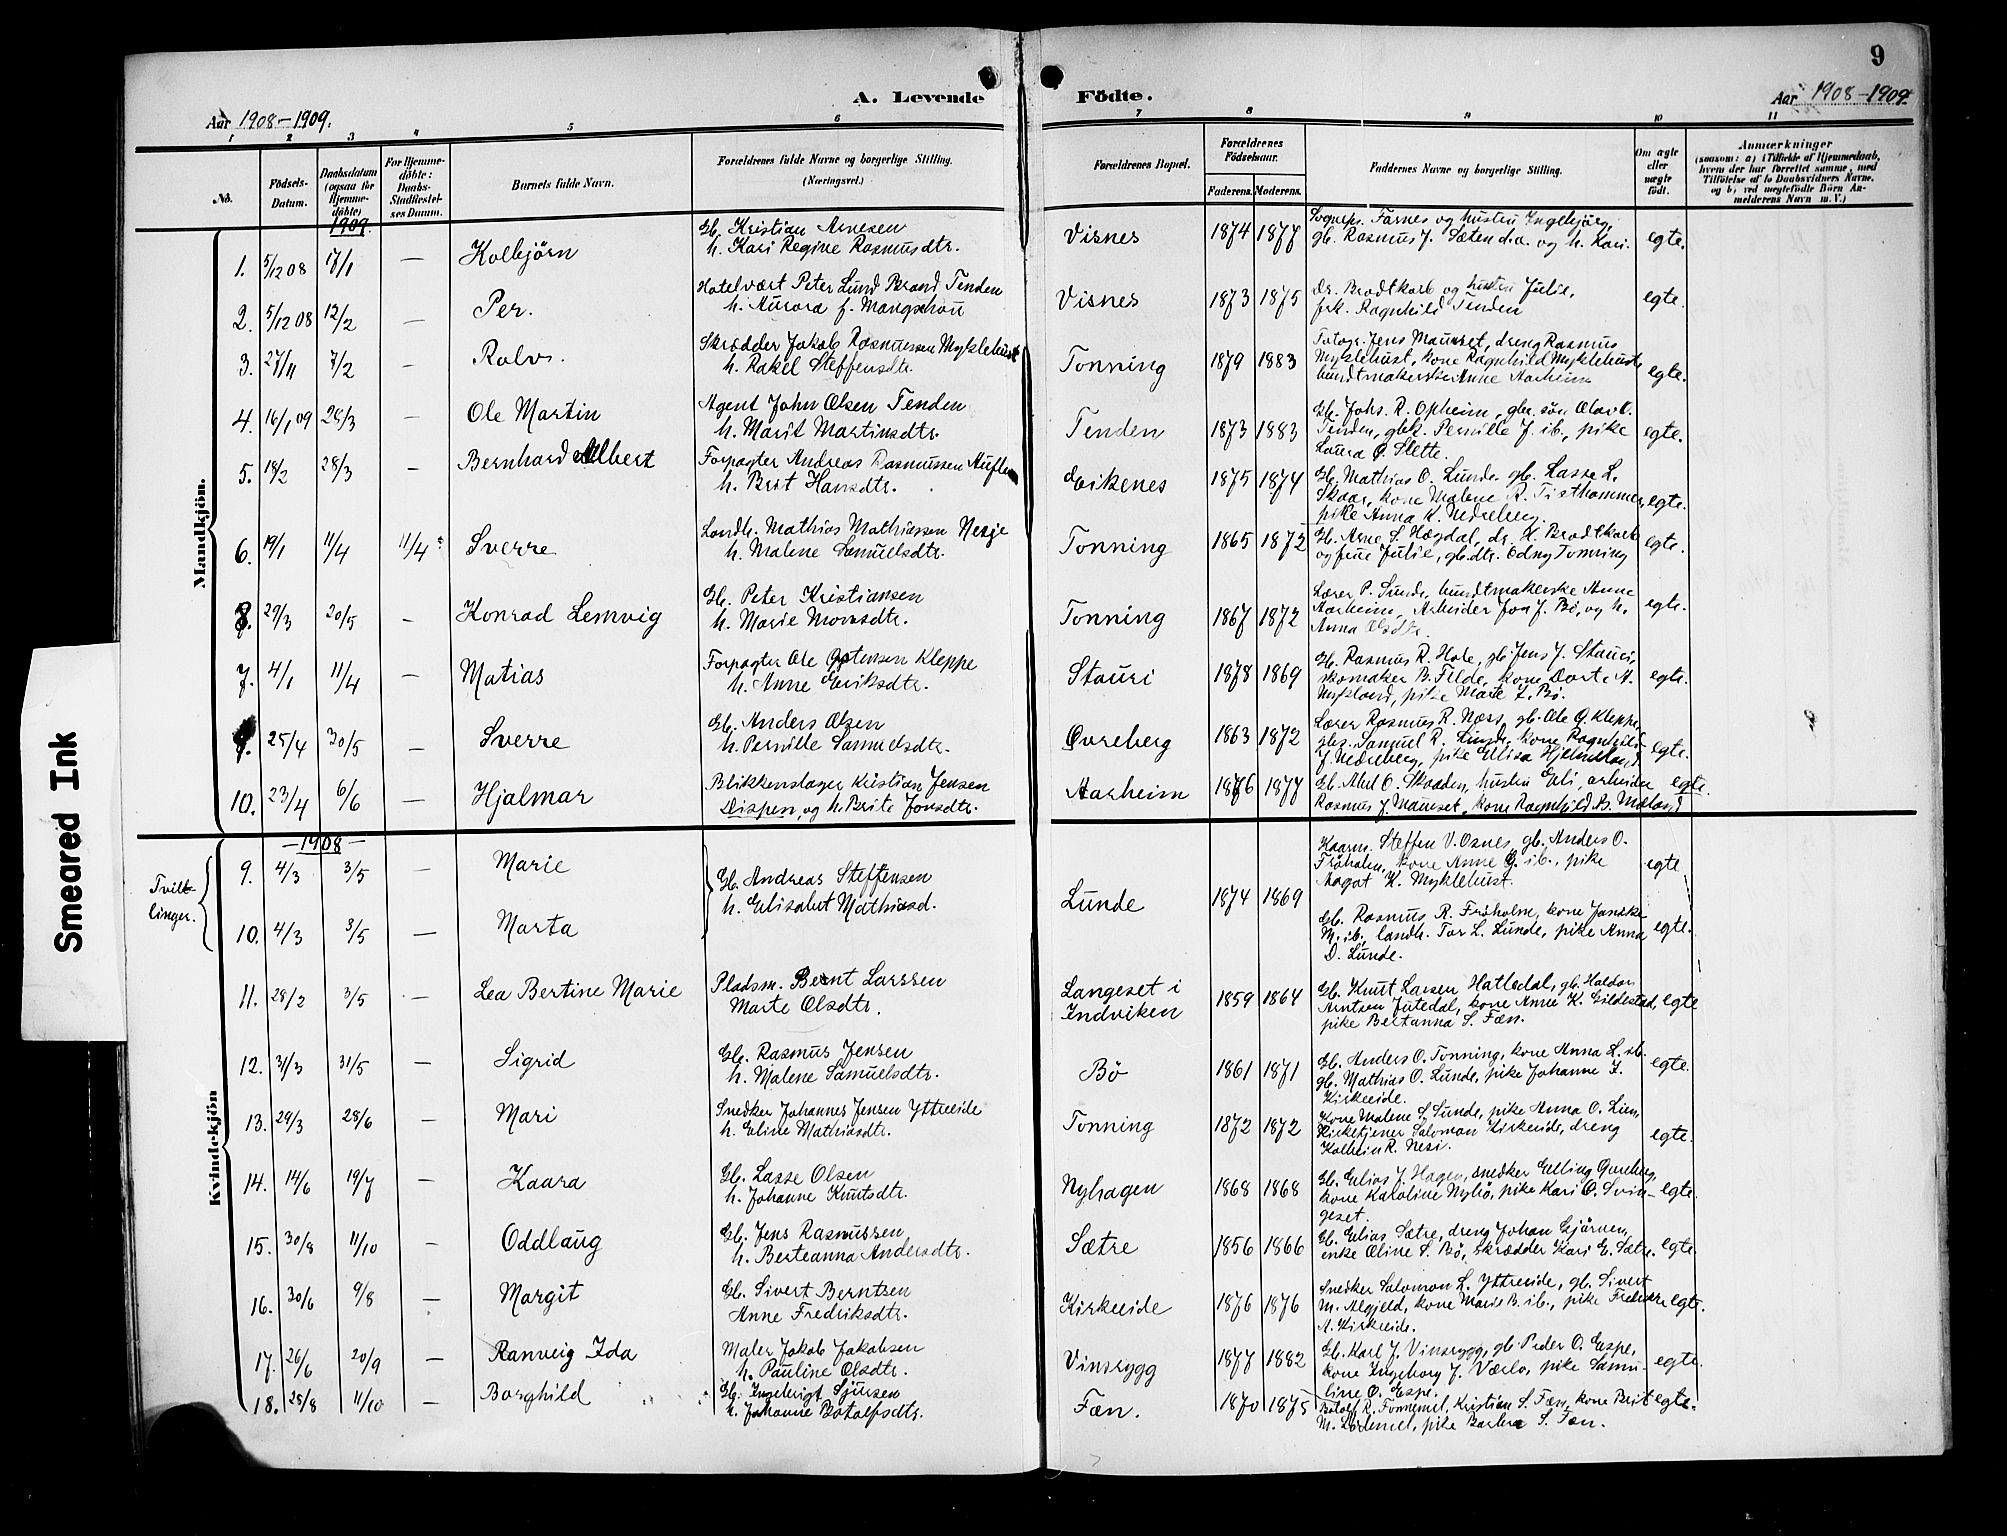 9
A. Levende Födte.
Aar 1908-1909.
Aar 1908-1909.
1 2 3 4 5 6 7 8 9 10 11
No.
Födsels-Datum.
Daabsdatum (ogsaa for Hjemme-döbte)
For Hjemme-döbte: Daabs-Stadfæstel-ses Datum.
Barnets fulde Navn.
Forældrenes fulde Navne og borgerlige Stilling.
(Næringsvei.)
Forældrenes Bopæl.
Forældrenes Födselsaar.
Faderens. Moderens.
Faddernes Navne og borgerlige Stilling.
Om ægte eller uægte födt.
Anmærkninger
(saasom: a) i Tilfælde af Hjemmedaab,
hvem der har forrettet samme, med
Tilföielse af to Daabsvidners Navne,
og b) ved uegtefödte Börn An-
melderens Navn m. V.)
Mandkjön.
1909.
1. 5/12 08 17/1 — Kolbjörn
Gb. Kristian Arnesen
h. Kari Regine Rasmusdtr.
Visnes 1874 1877
Sogneps. Farnes og hustru Ingebjörg,
gb. Rasmus J. Sæten d.a. og h. Kari.
egte.
2. 5/12 08 12/2 — Per.
Hotelvært Peter Lund Brand Tenden
h. Aurora f. Mangschou
Visnes 1873 1875
Dr. Brodtkorb og hustru Julie,
frk. Ragnhild Tenden
egte.
3. 27/11 7/2 — Rolv.
Skrædder Jakob Rasmussen Myklehust
h. Rakel Steffensdtr.
Tonning 1879 1883
Fotogr. Jens Maurset, dreng Rasmus
Myklehust, kone Ragnhild Myklehust,
bundtmakerske Anne Aarheim
egte.
4. 16/1 09 28/3 — Ole Martin
Agent John Olsen Tenden
h. Marit Martinsdtr.
Tenden 1873 1883
Gb. Johs. R. Opheim, gbr. søn Olav O.
Tenden, gbk. Pernille J. ib., pike
Laura O. Slette.
egte.
5. 18/2 28/3 — Bernhard Albert
Forpagter Andreas Rasmussen Auflem
h. Brit Hansdtr.
Eikenes 1875 1874
Gb. Mathias O. Lunde gb. Lasse L.
Skaar, kone Malene A. Tisthammer,
pike Anna K. Nedreberg.
egte.
6. 19/1 11/4 11/4 Sverre
Landh. Mathias Mathiassen Nesje
h. Malene Samuelsdtr.
Tonning 1865 1872
Gb. Arne S. Hægdal, dr. K. Brodtkorb
og frue Julie, gb.dtr. Edny Tonning
egte.
8. 29/3 20/5 — Konrad Lemvig
Gb. Peter Kristiansen
h. Marie Monsdtr.
Tonning 1867 1872
Lærer P. Sunde, bundtmakerske Anne
Aarheim, Arbeider Jon J. Bø, og h.
Anna Olsdtr.
egte.
7. 4/1 11/4 — Matias
Forpagter Ole Kleppe
h. Anne Eriksdtr.
Stauri 1878 1869
Gb. Rasmus R. Hole, gb. Jens J. Stauri,
skomaker B. Filde, kone Dorte A.
Mykland, pike Marie L. Bø.
egte.
9. 25/4 30/5 — Sverre
Gb. Anders Olsen
h. Pernille Samuelsdtr.
Øvreberg 1863 1872
Lærer Rasmus R. Nærø, gb. Ole O. Kleppe,
gbs. Samuel R. Lunde, kone Ragnhild
J. Nedreberg, pike Elisa Hjelmeland
egte.
10. 23/4 6/6 — Hjalmar
Blikkenslager Kristian Jensen
Dispen, og h. Brite Jonsdtr.
Aarheim 1876 1877
Gb. Abel O. Skadden, hustru Eli, arbeider
Rasmus J. Maurset, kone Ragnhild B. Mæland
egte.
Kvindekjön
Tvillinger.
—1908—
9. 4/3 3/5 — Marie
Gb. Andreas Steffensen
h. Elisabet Mathiasd.
Lunde 1874 1869
Kaarm. Steffen V. Osnes, gb. Anders O.
Frøholm, kone Anne G. ib., pike
Aagot K. Myklehust.
egte
10. 4/3 3/5 — Marta
Gb. Rasmus R. Frøholm, kone Janske
M. ib., landh. Tor L. Lunde, pike Anna
D. Lunde.
egte.
11. 28/2 3/5 — Lea Bertine Marie
Pladsm. Bernt Larssen
Marte Olsdtr.
Langeset i
Indviken
1859 1864
Gb. Knut Larsen Hatledal, gb. Haldor
Arntsen Jutedal, kone Anne K. Gildestad,
pike Bertanna S. Fæn.
egte
12. 31/3 31/5 — Sigrid
Gb. Rasmus Jensen
h. Malene Samuelsdtr.
Bö 1861 1871
Gb. Anders O. Tonning, kone Anna L. ib.
gb. Mathias O. Lunde, pike Johanne I.
Kirkeeide.
egte.
13. 29/3 28/6 — Mari
Snedker Johannes Jensen Yttreeide
h. Eline Mathiasdtr.
Tonning 1872 1872
Kone Malene S. Sunde, pike Anna O. Lien,
Kirketjener Salomon Kirkeeide, dreng
Kolbein R. Nesi.
egte.
14. 14/6 19/7 — Kaara
Gb. Lasse Olsen
h. Johanne Knutsdtr.
Nyhagen 1868 1868
Gb. Elias J. Hagen, snedker Elling Øvreberg,
kone Karoline Nyhø, pike Kari O. Svin-
geset.
egte.
15. 30/8 11/10 — Oddlaug
Gb. Jens Rasmussen
h. Berteanna Andersdtr.
Sætre 1856 1866
Gb. Elias Sætre, dreng Johan Gjörnen,
enke Oline S. Bø, skrædder Kari E. Sætre.
egte.
16. 30/6 9/8 — Margit
Gb. Sivert Berntsen
Anne Fredriksdtr.
Kirkeeide 1876 1876
Snedker Salomon L. Yttreeide, gb. Sivert
M. Algjeld, kone Marie B. ib., pike Fredrikke
A. Kirkeeide.
egte.
17. 26/6 20/9 — Ranveig Ida
Maler Jakob Jakobsen
h. Pauline Olsdtr.
Vinsrygg 1877 1882
Gb. Karl J. Vinsrygg, gb. Peder O. Espe,
kone Ingeborg J. Værlo, pike Samu-
line O. Espe.
egte.
18. 28/8 11/10 — Borghild
Gb. Ingebrigt Sjursen
h. Johanne Botolfsdtr.
Fæn. 1870 1875
Botolf R. Fonnemel, Kristian S. Fæn, kone Brit
M. Lødemel, pike Barbra S. Fæn.
egte.
Smeared Ink